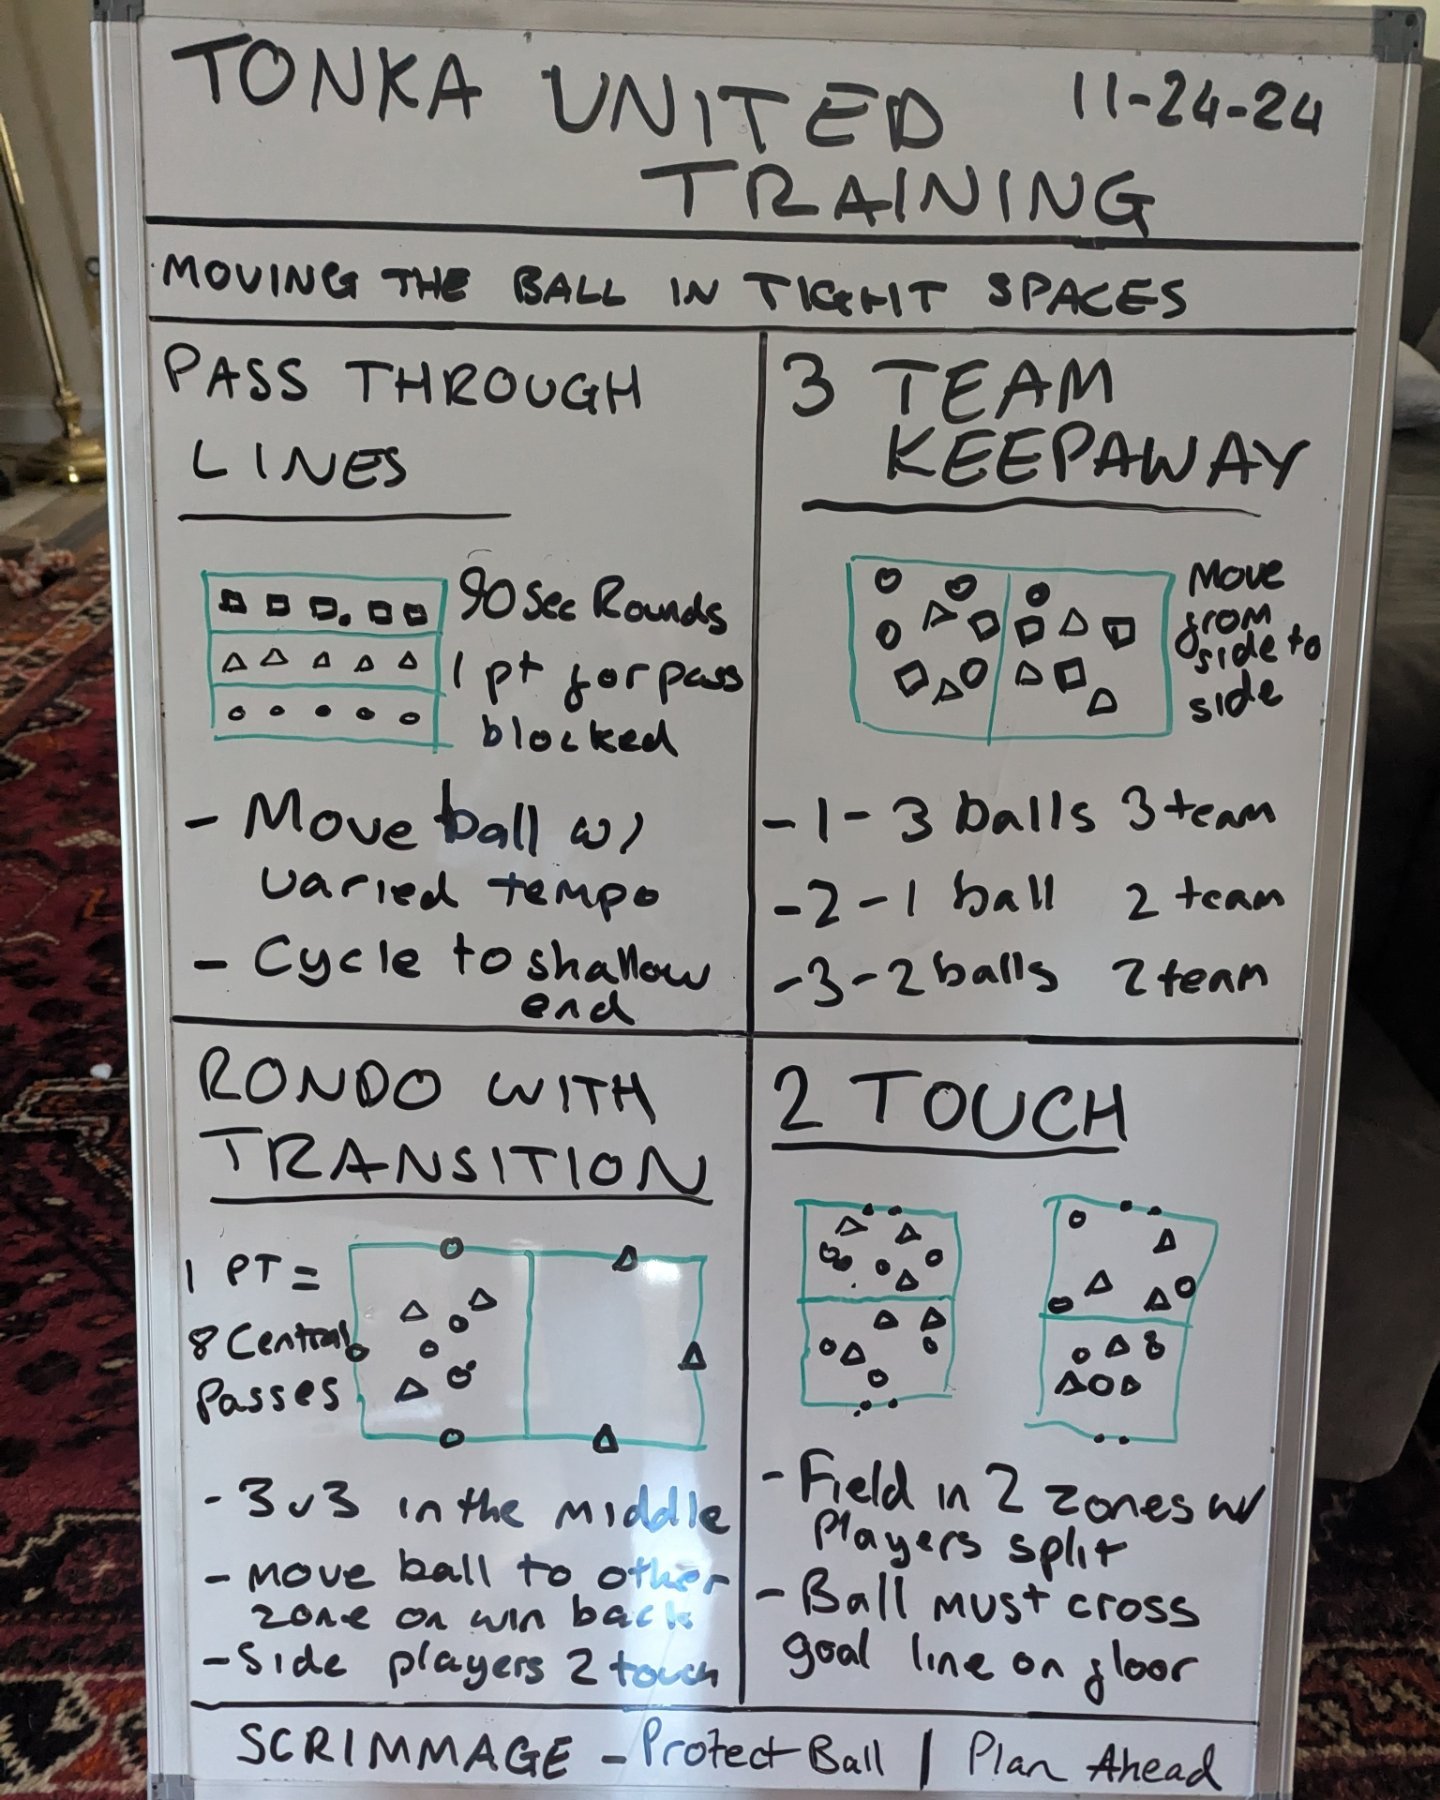 TONKA UNITED 11-24-24
TRAINING
MOVING THE BALL IN TIGHT SPACES
PASS THROUGH
LINES
90 Sec Rounds
1 pt for pass
blocked
- Move ball w/
varied tempo
- Cycle to shallow
end
3 TEAM
KEEPAWAY
Move
from
side to
side
- 1 - 3 balls 3 team
- 2 - 1 ball 2 team
- 3 - 2 balls 2 team
RONDO WITH
TRANSITION
1 PT =
8 Central
Passes
- 3v3 in the middle
- move ball to other
zone on win back
- Side players 2 touch
2 TOUCH
- Field in 2 zones w/
Players split
- Ball must cross
goal line on floor
SCRIMMAGE - Protect Ball | Plan Ahead